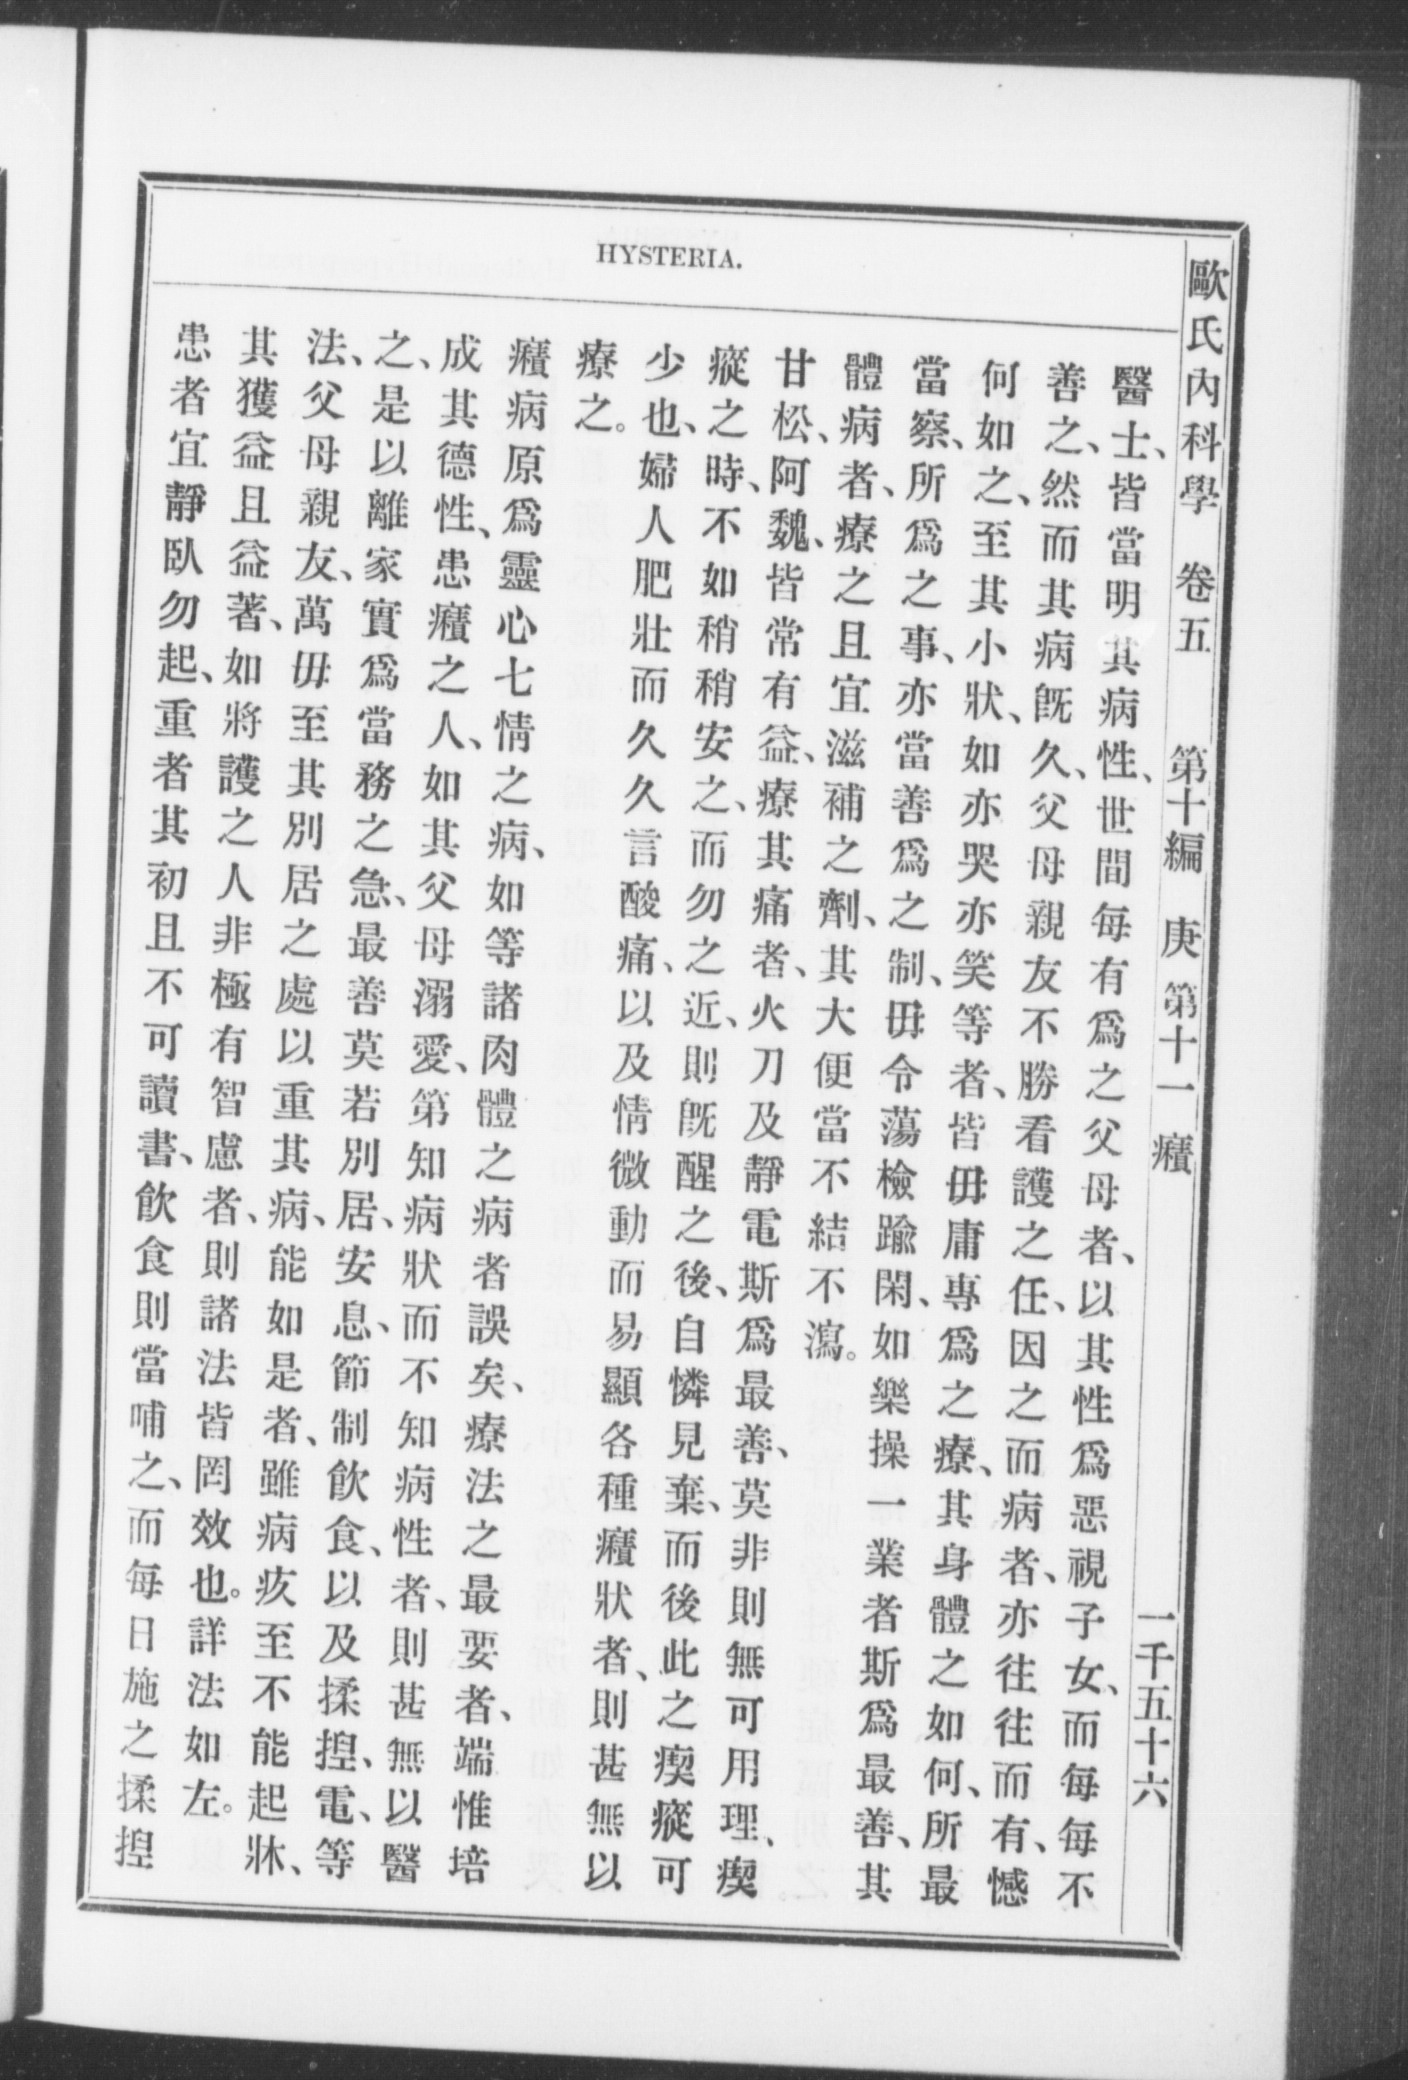 歐氏內科學　卷五　第十編　庚　第十一　癪　一千五十六
HYSTERIA.
醫士、皆當明其病性、世間每有爲之父母者、以其性爲惡視子女、而每每不
善之、然而其病旣久、父母親友不勝看護之任、因之而病者、亦往往而有、憾
何如之、至其小狀、如亦哭亦笑等者、皆毋庸專爲之療、其身體之如何、所最
當察、所爲之事、亦當善爲之制、毋令蕩檢踰閑、如樂操一業者斯爲最善、其
體病者、療之且宜滋補之劑、其大便當不結不瀉。
甘松、阿魏、皆常有益、療其痛者、火刀及靜電斯爲最善、莫非則無可用理、瘈
瘲之時、不如稍稍安之、而勿之近、則旣醒之後、自憐見棄、而後此之瘈瘲可
少也、婦人肥壯而久久言酸痛、以及情微動而易顯各種癪狀者、則甚無以
療之。
癪病原爲靈心七情之病、如等諸肉體之病者誤矣、療法之最要者、端惟培
成其德性、患癪之人、如其父母溺愛、第知病狀而不知病性者、則甚無以醫
之、是以離家實爲當務之急、最善莫若別居、安息、節制飮食、以及揉揑、電、等
法、父母親友、萬毋至其別居之處以重其病、能如是者、雖病疚至不能起牀、
其獲益且益著、如將護之人非極有智慮者、則諸法皆罔效也。詳法如左。
患者宜靜臥勿起、重者其初且不可讀書、飮食則當哺之、而每日施之揉揑